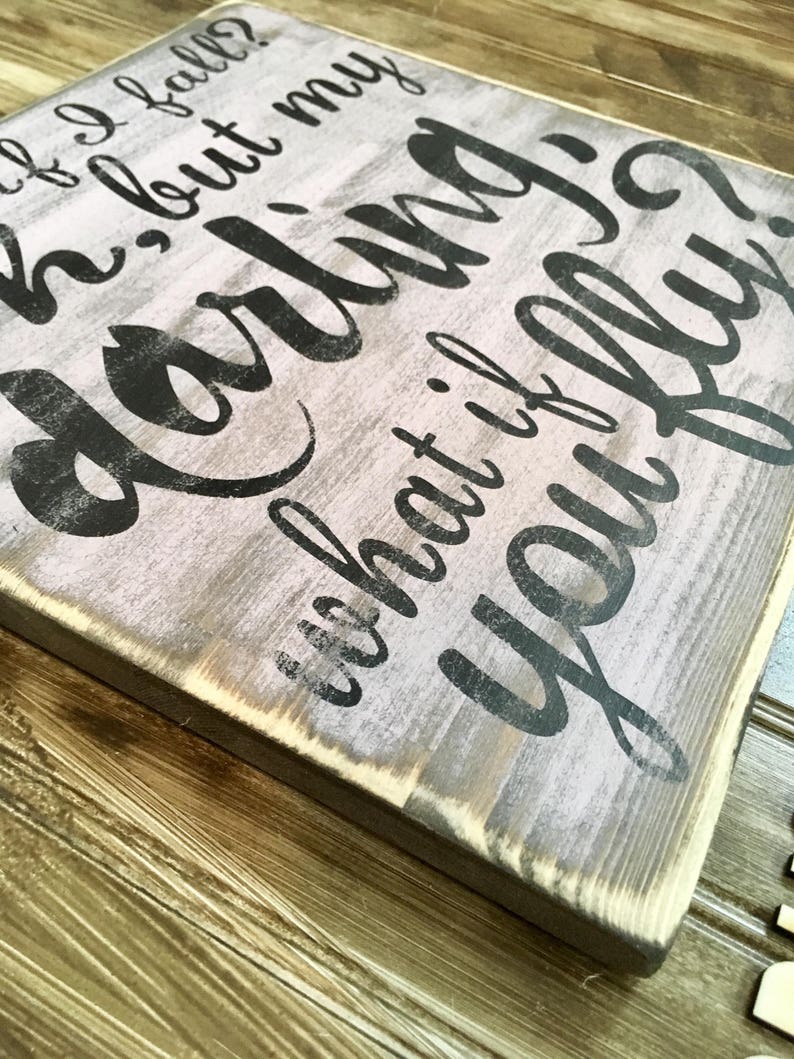 if I fall?
h, but my
darling,
what if
you fly?